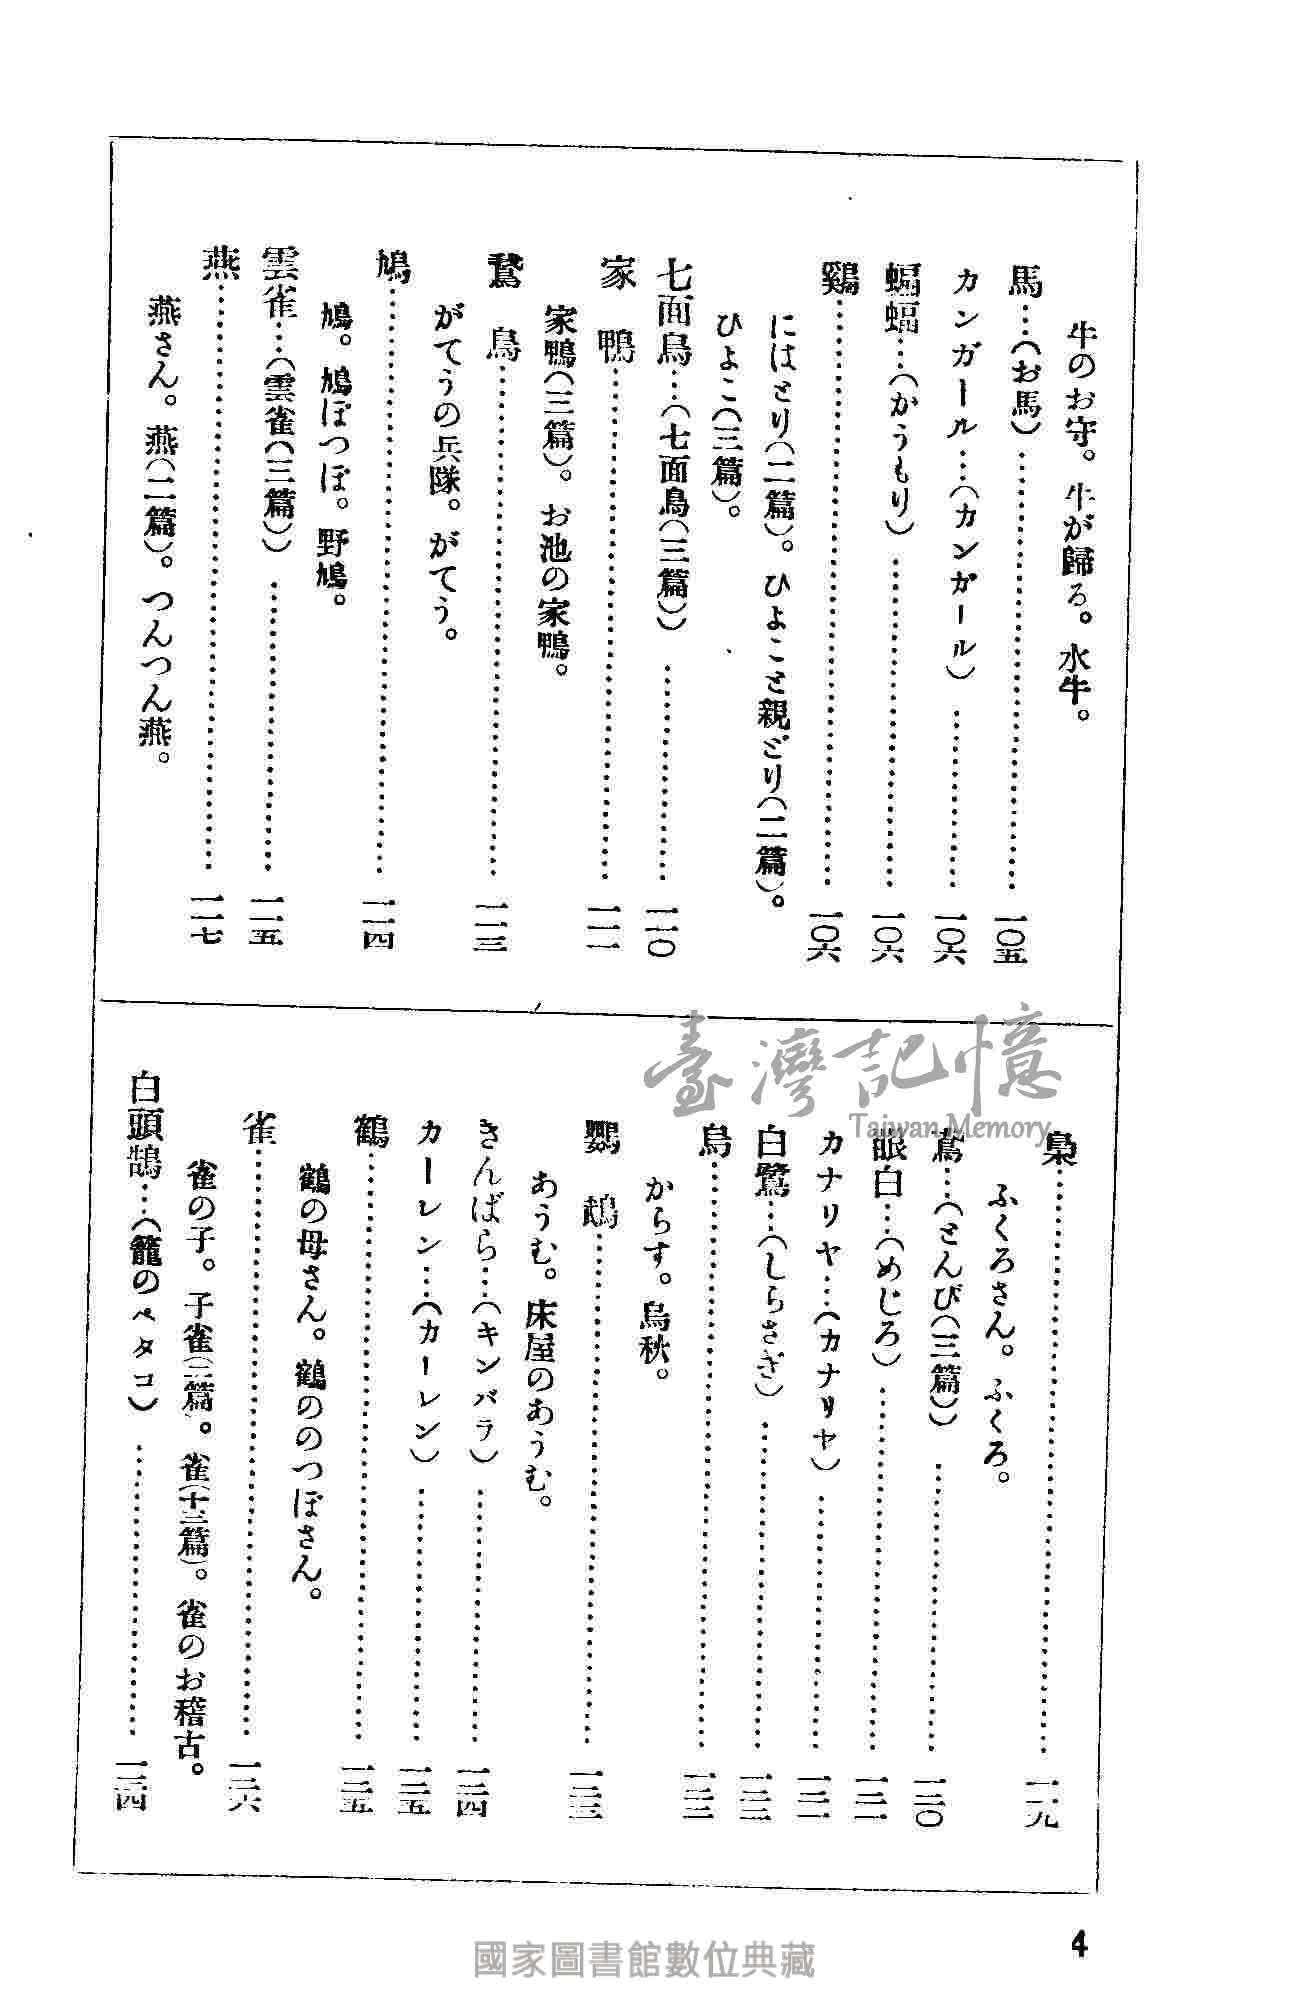 牛のお守。牛が歸る。水牛。
馬…(お馬)……………一〇五
カンガール…(カンガール)……………一〇六
蝙蝠…(かうもり)……………一〇六
鷄……………一〇六
にはとり(二篇)。ひよこと親どり(二篇)。
ひよこ(三篇)。
七面鳥…(七面鳥(三篇))……………一一〇
家鴨……………一一一
家鴨(三篇)。お池の家鴨。
鵞鳥……………一一三
がてうの兵隊。がてう。
鳩……………一一四
鳩。鳩ぽつぽ。野鳩。
雲雀…(雲雀(三篇))……………一一五
燕……………一一七
燕さん。燕(二篇)。つんつん燕。
梟……………一一九
ふくろさん。ふくろ。
鳶…(とんび(三篇))……………一二〇
眼白…(めじろ)……………一二一
カナリヤ…(カナリヤ)……………一二一
白鷺…(しらさぎ)……………一二二
烏……………一二二
からす。烏秋。
鸚鵡……………一二三
あうむ。床屋のあうむ。
きんばら…(キンバラ)……………一二四
カーレン…(カーレン)……………一二五
鶴……………一二五
鶴の母さん。鶴ののつぽさん。
雀……………一二六
雀の子。子雀(二篇)。雀(十三篇)。雀のお稽古。
白頭鵠…(籠のペタコ)……………一三四
臺灣記憶
Taiwan Memory
4
國家圖書館數位典藏